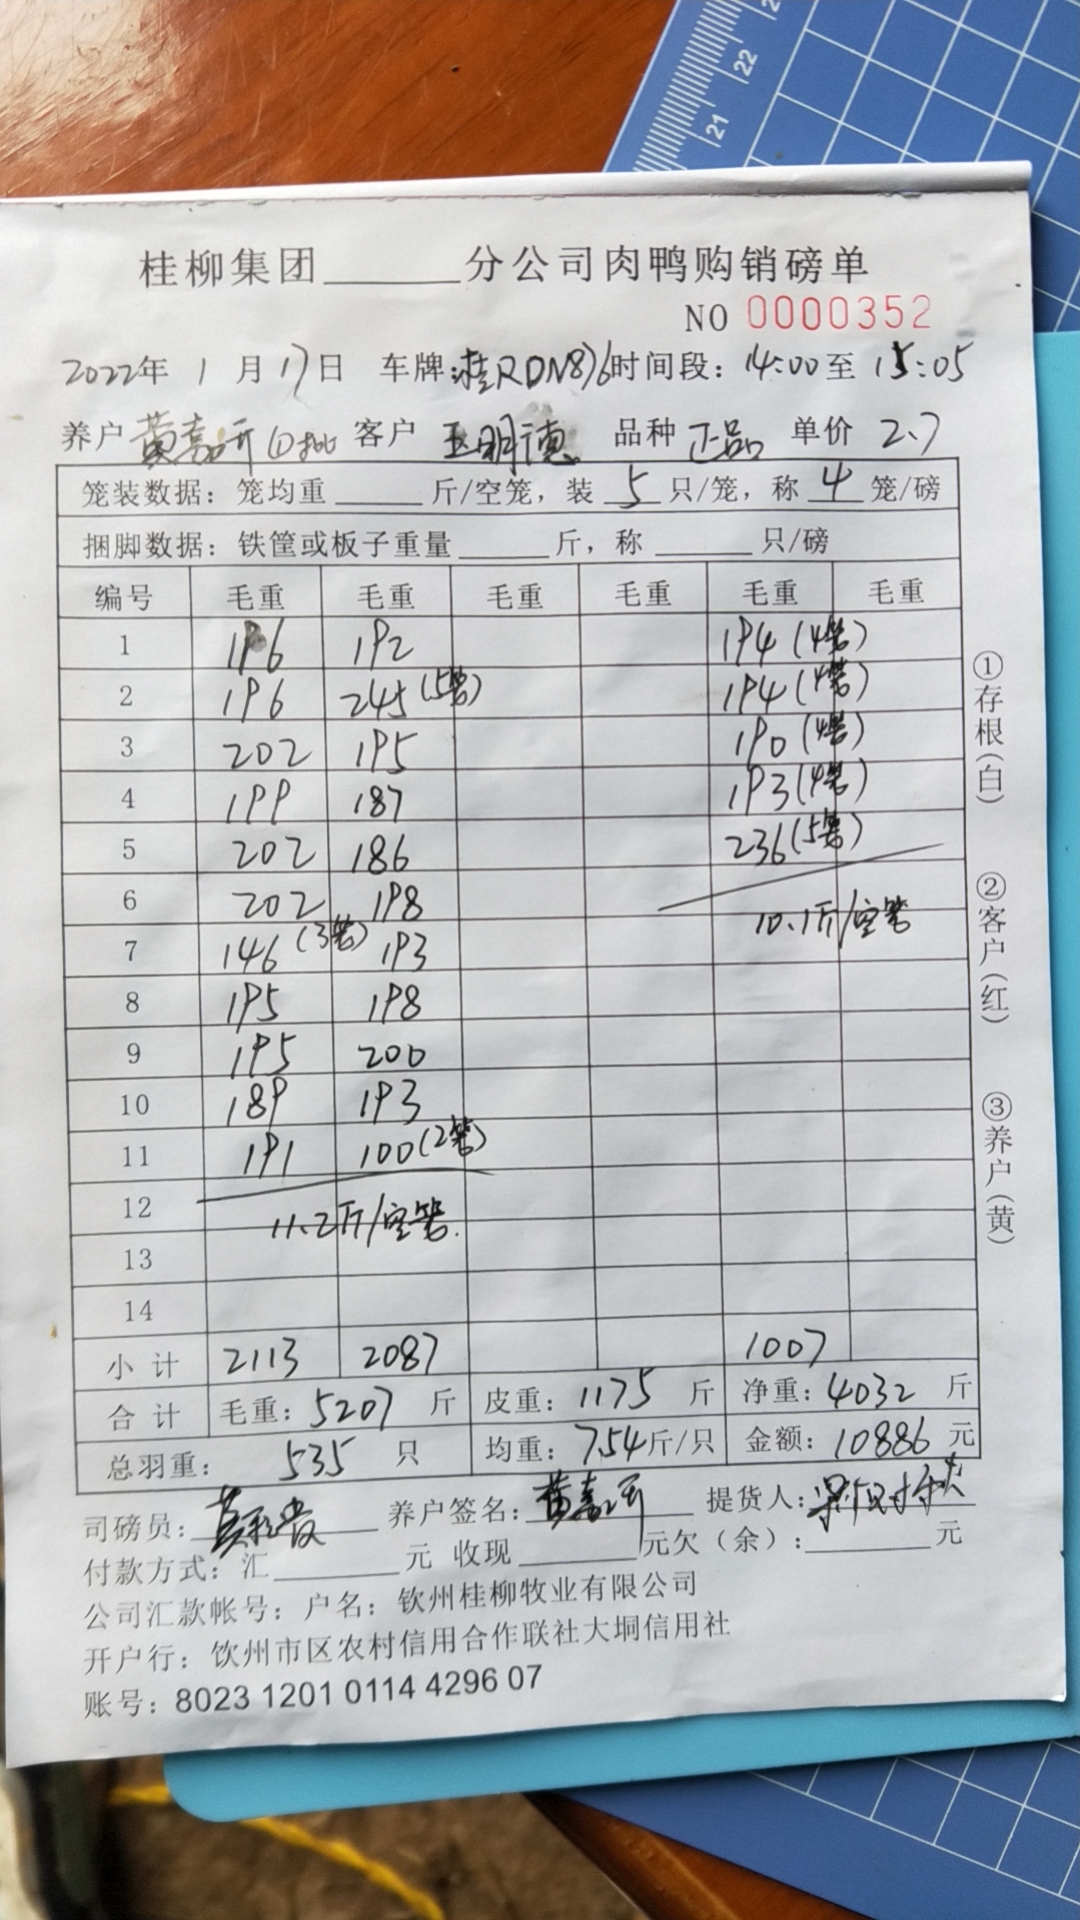 22
21
桂柳集团______分公司肉鸭购销磅单
NO 0000352
2022年 1 月 17日 车牌:桂RDN876时间段: 14:00至 15:05
养户 黄嘉 客户 王明德 品种 正品 单价 2.7
笼装数据: 笼均重______斤/空笼, 装 5 只/笼, 称 4 笼/磅
捆脚数据: 铁筐或板子重量______斤, 称______只/磅
编号 毛重 毛重 毛重 毛重 毛重 毛重
1 196 192 194(4笼)
2 196 245(5笼) 194(4笼)
3 202 195 190(4笼)
4 199 187 193(4笼)
5 202 186 236(5笼)
6 202 198 10.1斤/空笼
7 146(3笼) 193
8 195 198
9 195 200
10 189 193
11 191 100(2笼)
12 11.2斤/空笼.
13
14
小 计 2113 2087 1007
合 计 毛重: 5207 斤 皮重: 1175 斤 净重: 4032 斤
总羽重: 535 只 均重: 7.54斤/只 金额: 10886 元
司磅员: 养户签名: 黄嘉 提货人:
付款方式: 汇______元 收现______元欠(余):______元
公司汇款帐号: 户名: 钦州桂柳牧业有限公司
开户行: 钦州市区农村信用合作联社大垌信用社
账号: 8023 1201 0114 4296 07
①存根(白)
②客户(红)
③养户(黄)